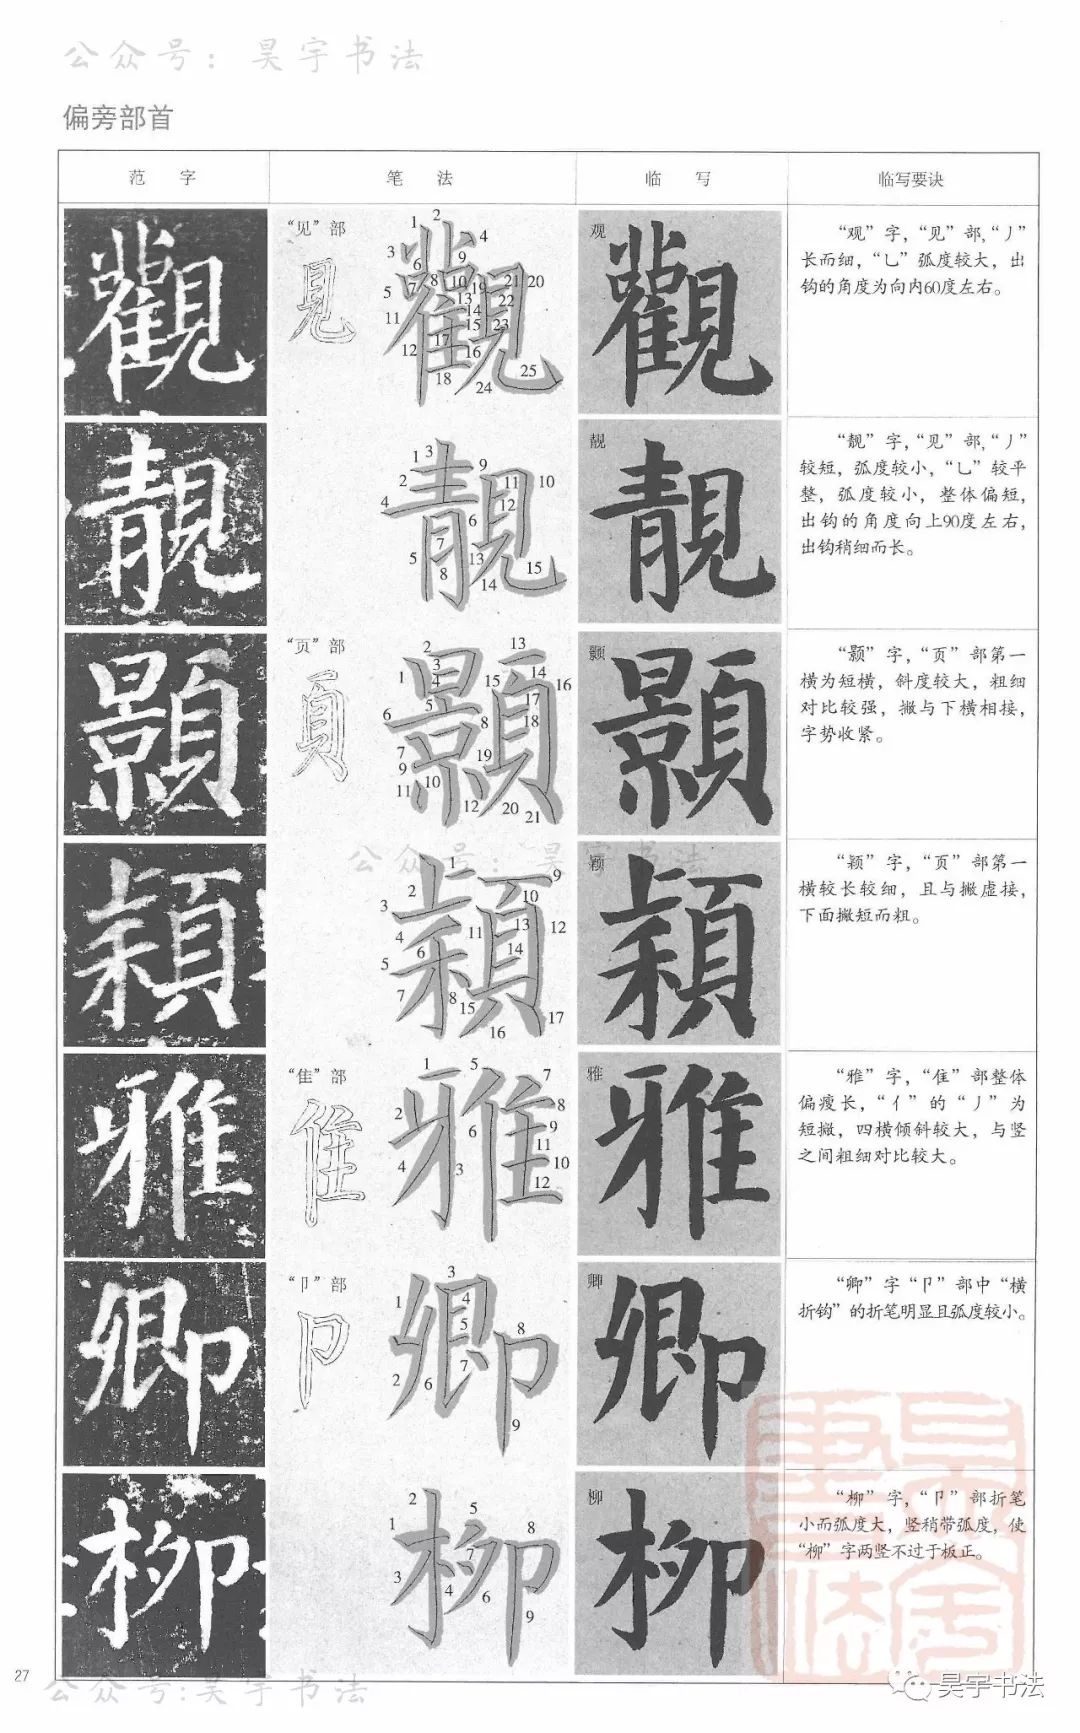 公众号：昊宇书法
偏旁部首
范 字
笔 法
临 写
临写要诀
觀
“见”部
見
觀
1 2 3 4 5 6 7 8 9 10 11 12 13 14 15 16 17 18 19 20 21 22 23 24 25
观
觀
“观”字，“见”部，“丿”
长而细，“乚”弧度较大，出
钩的角度为向内60度左右。
靚
靚
1 2 3 4 5 6 7 8 9 10 11 12 13 14 15
靓
靚
“靓”字，“见”部，“丿”
较短，弧度较小，“乚”较平
整，弧度较小，整体偏短，
出钩的角度向上90度左右，
出钩稍细而长。
顥
“页”部
頁
顥
1 2 3 4 5 6 7 8 9 10 11 12 13 14 15 16 17 18 19 20 21
颢
顥
“颢”字，“页”部第一
横为短横，斜度较大，粗细
对比较强，撇与下横相接，
字势收紧。
公众号：昊宇书法
穎
穎
1 2 3 4 5 6 7 8 9 10 11 12 13 14 15 16 17
颖
穎
“颖”字，“页”部第一
横较长较细，且与撇虚接，
下面撇短而粗。
雅
“隹”部
隹
雅
1 2 3 4 5 6 7 8 9 10 11 12
雅
雅
“雅”字，“隹”部整体
偏瘦长，“亻”的“丿”为
短撇，四横倾斜较大，与竖
之间粗细对比较大。
卿
“卩”部
卩
卿
1 2 3 4 5 6 7 8 9
卿
卿
“卿”字“卩”部中“横
折钩”的折笔明显且弧度较小。
柳
柳
1 2 3 4 5 6 7 8 9
柳
柳
“柳”字，“卩”部折笔
小而弧度大，竖稍带弧度，使
“柳”字两竖不过于板正。
27
公众号:昊宇书法
昊宇书法